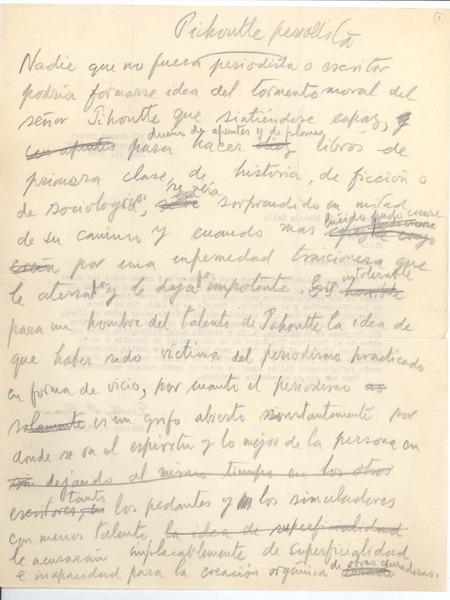 1
Pihoutte periodista
Nadie que no fuera periodista o escritor
podría formarse idea del tormento moral del
señor Pihoutte que sintiéndose capaz, y
dueño de apuntes y de planes
con apuntes para hacer diez libros de
primera clase de historia, de ficción o
de sociología, se veía sorprendido en mitad
de su camino y cuando mas lúcido pudo creerse
por una enfermedad traicionera que
le aterra y le deja impotente. Es intolerable
para un hombre del talento de Pihoutte la idea de
que haber sido víctima del periodismo practicado
en forma de vicio, por cuanto el periodismo no
solamente es un grifo abierto constantemente por
donde se va el espíritu y lo mejor de la persona en
dejando al mismo tiempo en los otros
tanto
escritores, los pedantes y los simuladores
con menos talento, la idea de superficialidad
le acusarán implacablemente de superficialidad
e incapacidad para la creación orgánica de obras duraderas.